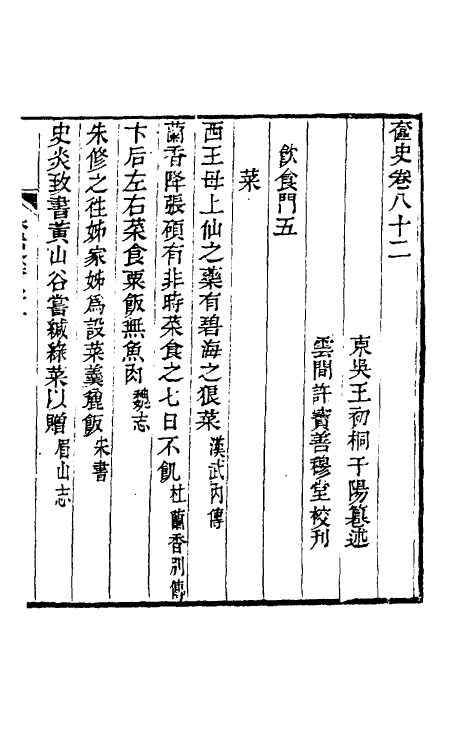 奩史卷八十二
東吳王初桐于陽纂述
雲間許寶善穆堂校刊
飲食門五
菜
西王母上仙之藥有碧海之狼菜漢武內傳
蘭香降張碩有非時菜食之七日不飢杜蘭香別傳
卞后左右菜食粟飯無魚肉魏志
朱修之往姊家姊爲設菜羹麄飯宋書
史炎致書黃山谷嘗緘綠菜以贈眉山志